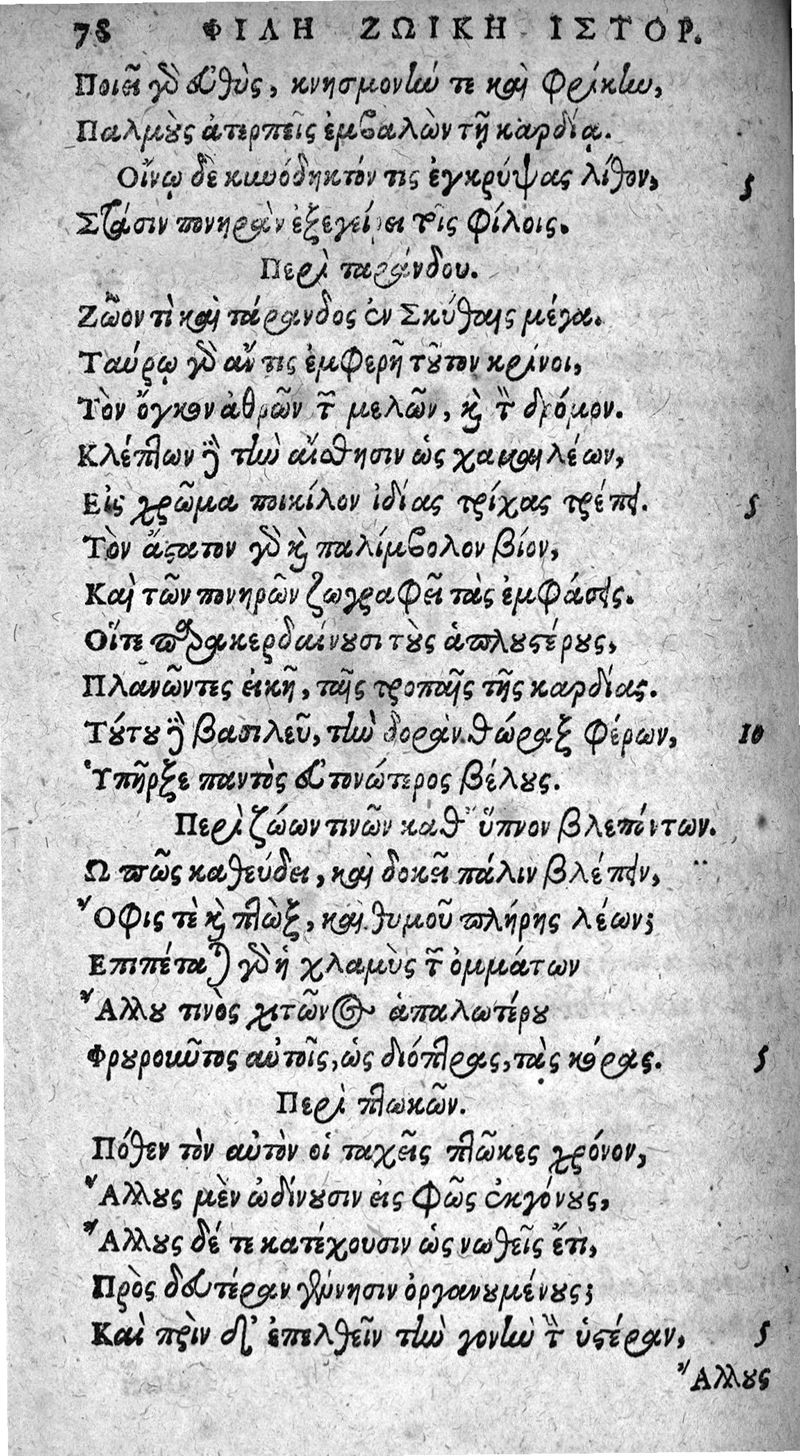 78 ΦΙΛΗ ΖΩΙΚΗ ΙΣΤΟΡ.
Ποιεῖ γὸ εὐθὺς, κνησμονlώ τε καὶ φρίκlω,
Παλμοὺς ἀτερπεῖς ἐμβαλὼν τῇ καρδίᾳ.
Οἴνῳ δὲ κυνόδηκτόν τις ἐγκρύψας λίθον, 5
Στάσιν πονηρὰν ἐξεγείρει τοῖς φίλοις.
Περὶ παράνδου.
Ζῶον τὶ καὶ πάρανδος ἐν Σκύθαις μέγα.
Ταύρῳ γὸ ἄν τις ἐμφερῆ τοῦτον κρίνοι,
Τὸν ὄγκον ἀθρῶν τῶν μελῶν, καὶ τὸν δρόμον.
Κλέπτων δὲ τὴν αἴσθησιν ὡς χαμαιλέων,
Εἰς χρῶμα ποικίλον ἰδίας τρίχας τρέπει. 5
Τὸν ἄστατον γὸ καὶ παλίμβολον βίον,
Καὶ τῶν πονηρῶν ζωγραφεῖ τὰς ἐμφάσεις.
Οἵτε παρακερδαίνουσι τοὺς ἁπλουστέρους,
Πλανῶντες εἰκῆ, ταῖς τροπαῖς τῆς καρδίας.
Τούτου δὲ βασιλεῦ, τὴν δορὰν θώραξ φέρων, 10
Ὑπῆρξε παντὸς εὐτονώτερος βέλους.
Περὶ ζώων τινῶν καθ' ὕπνον βλεπόντων.
Ω πῶς καθεύδει, καὶ δοκεῖ πάλιν βλέπειν,
Ὄφις τὲ καὶ πλὼξ, καὶ θυμοῦ πλήρης λέων;
Επιπέταται γὸ ἡ χλαμὺς τῶν ὀμμάτων
Ἄλλου τινὸς χιτῶνος ἁπαλωτέρου
Φρουροῦντος αὐτοῖς, ὡς διόπτρας, τὰς κόρας. 5
Περὶ πλωκῶν.
Πόθεν τὸν αὐτὸν οἱ ταχεῖς πλῶκες χρόνον,
Ἄλλους μὲν ὠδίνουσιν εἰς φῶς ἐκγόνους,
Ἄλλους δέ τε κατέχουσιν ὡς νωθεῖς ἔτι,
Πρὸς δευτέραν γέννησιν ὀργανουμένους;
Καὶ πρὶν δι' ἐπελθεῖν τὴν γονὴν τὴν ὑστέραν, 5
Ἄλλους